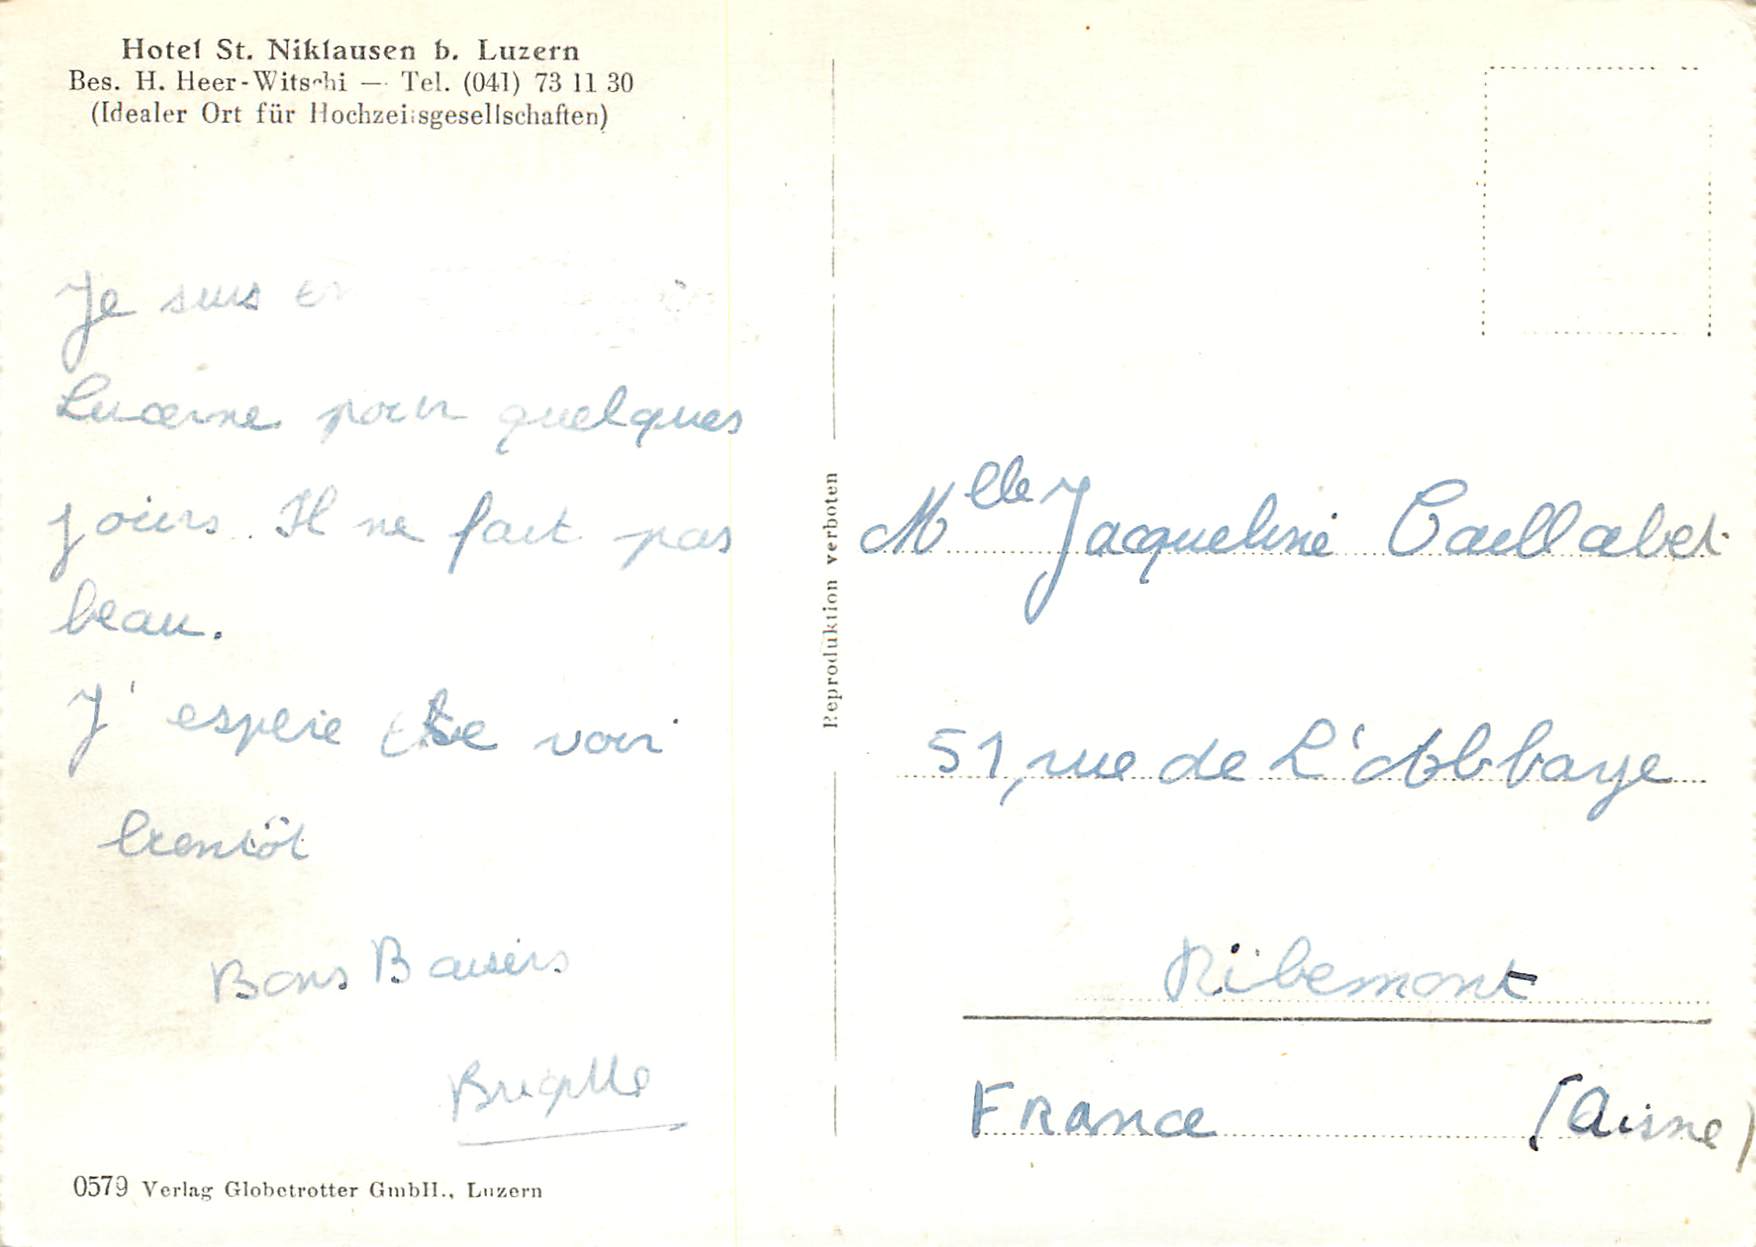 Hotel St. Niklausen b. Luzern
Bes. H. Heer-Witschi — Tel. (041) 73 11 30
(Idealer Ort für Hochzeitsgesellschaften)
Je suis en
Lucerne pour quelques
jours. Il ne fait pas
beau.
J'espère te voir
bientôt
Bons Baisers
Brigitte
0579 Verlag Globetrotter GmbH., Luzern
Reproduktion verboten
Mlle Jacqueline Caillabet
51, rue de L'Abbaye
Ribemont
France (Aisne)